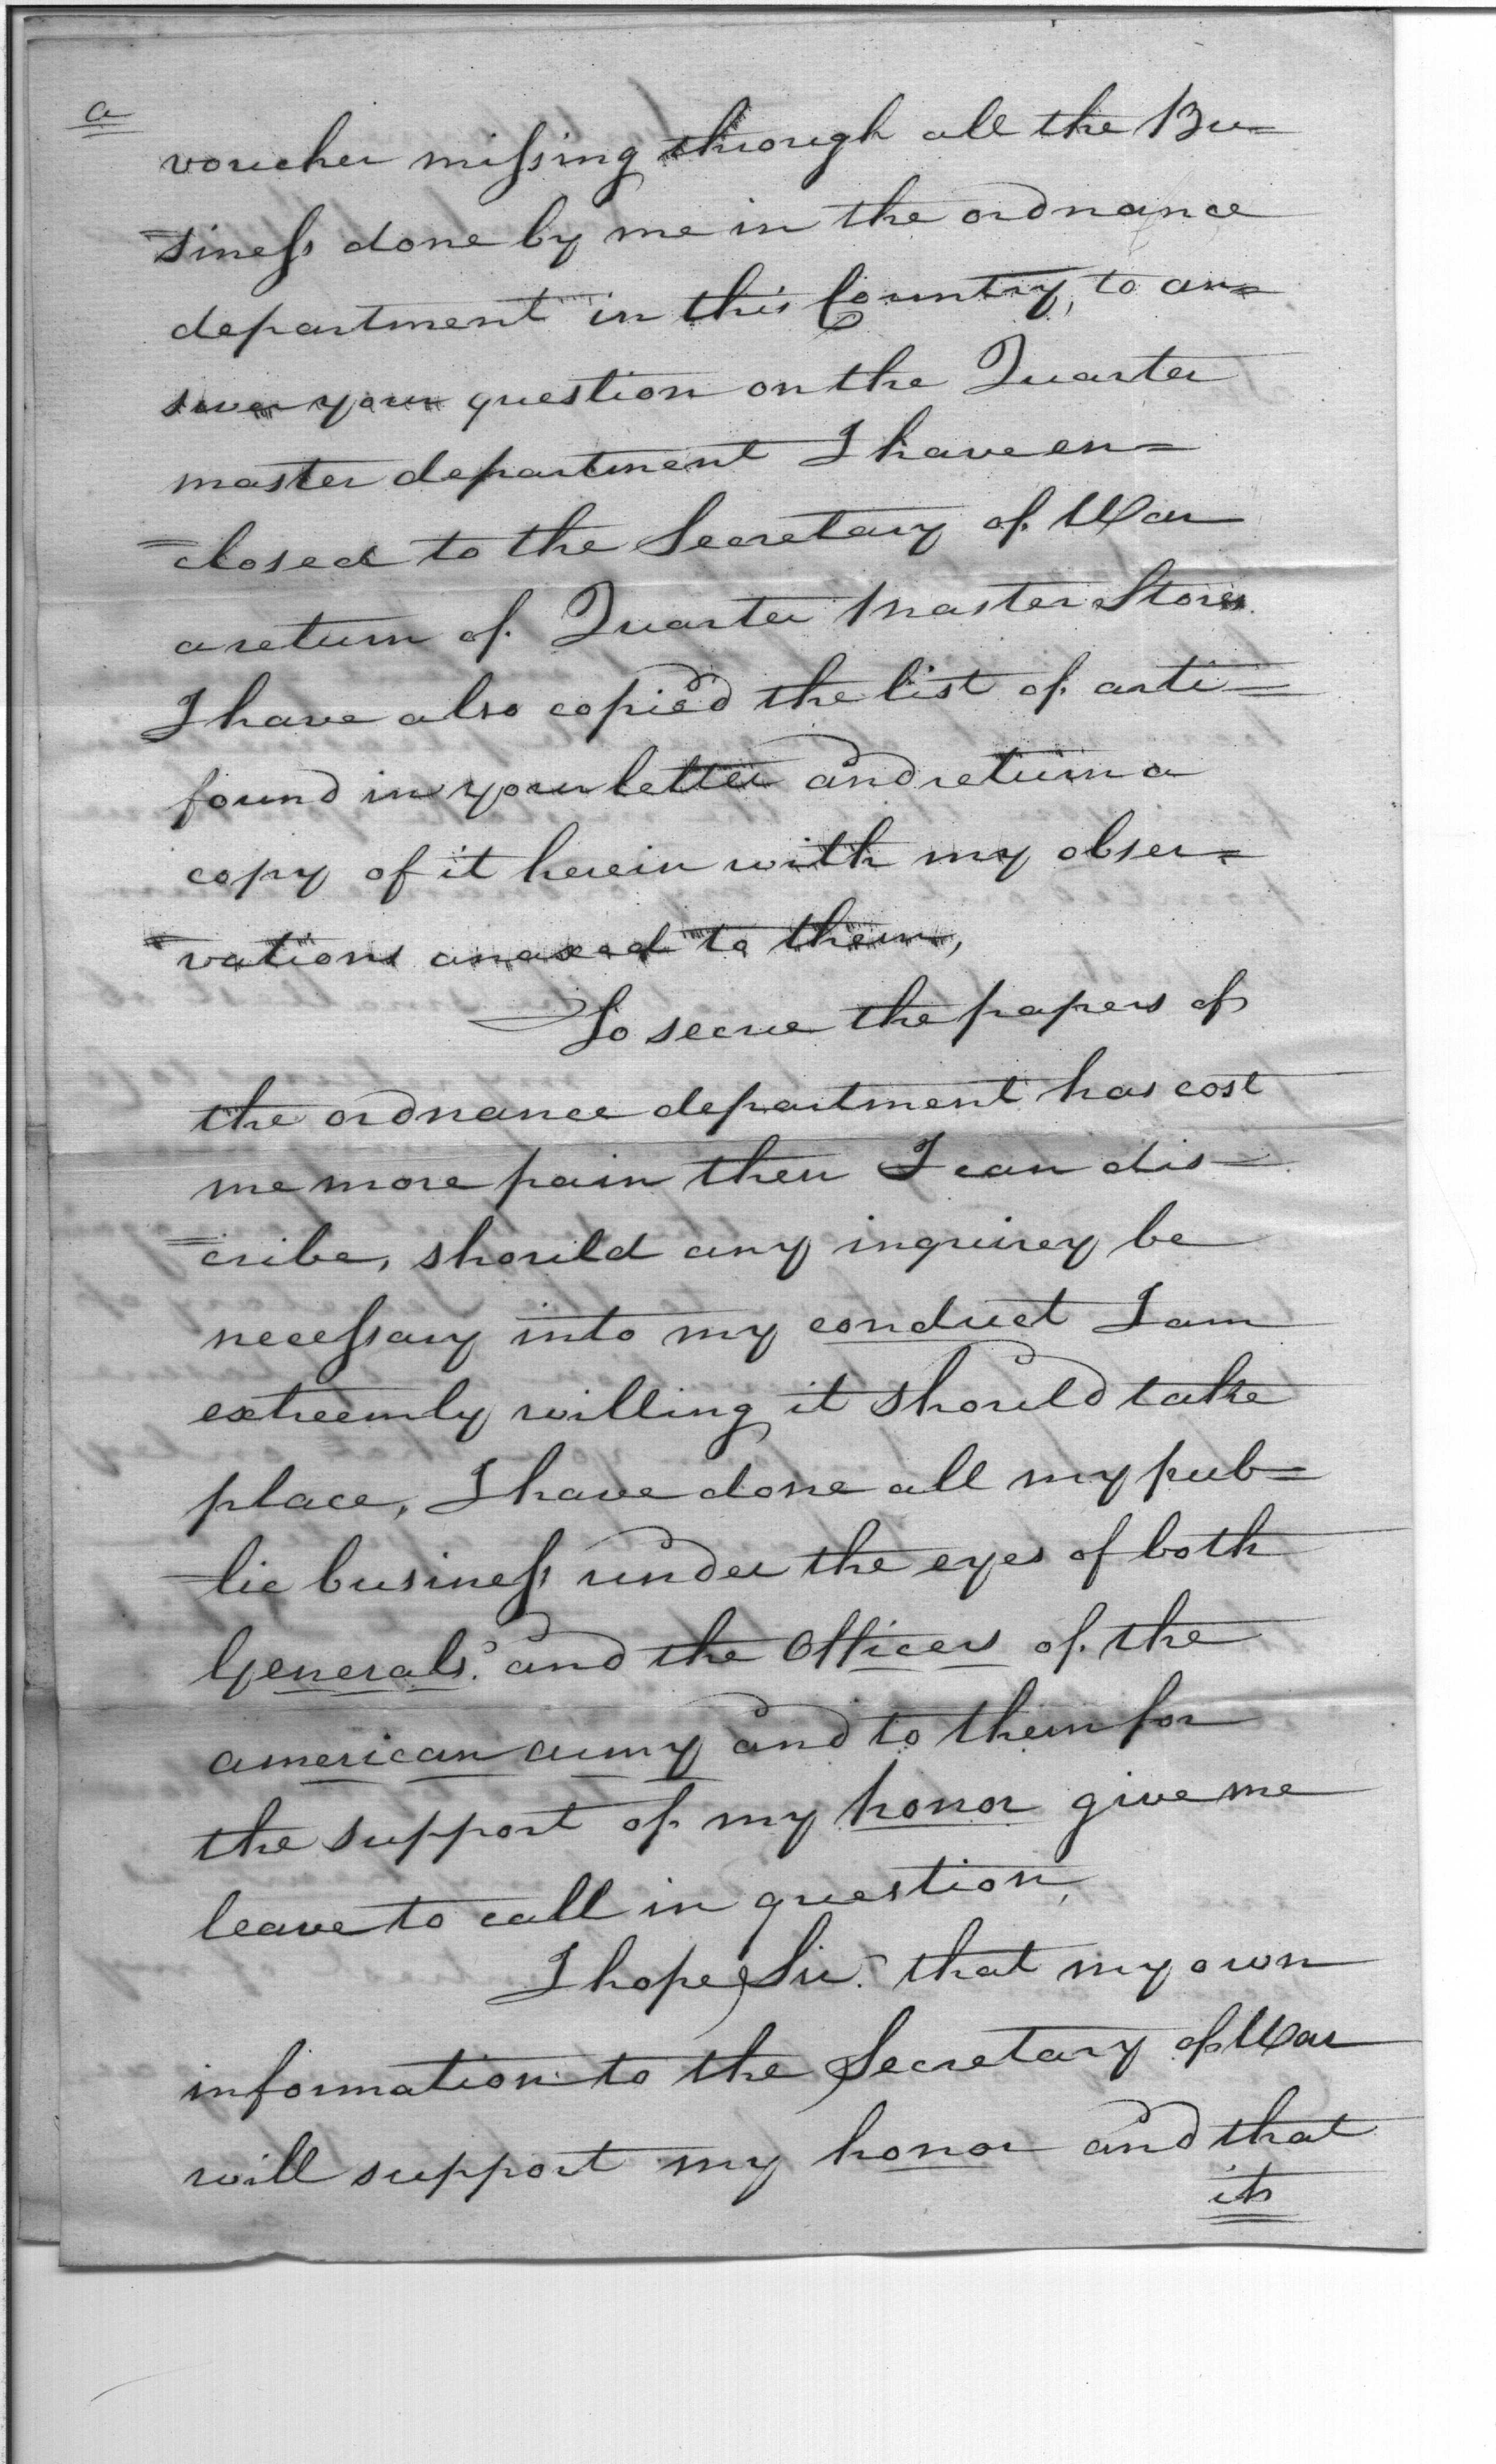 a
voucher missing through all the Bu=
=siness done by me in the ordnance
department in this Country, to an=
swer your question on the Quarter
master department I have en=
=closed to the Secretary of War
a return of Quarter Master Stores.
I have also copied the list of arti=
found in your letter and return a
copy of it herein with my obser=
=vations anaxed to them,
To secure the papers of
the ordnance department has cost
me more pain then I can dis=
=cribe, should any inquirey be
necessary into my conduct I am
extreemly willing it should take
place, I have done all my pub=
=lic business under the eyes of both
Generals. and the Officers of the
american army and to them for
the support of my honor give me
leave to call in question,
I hope Sir. that my own
information to the Secretary of War
will support my honor and that
its